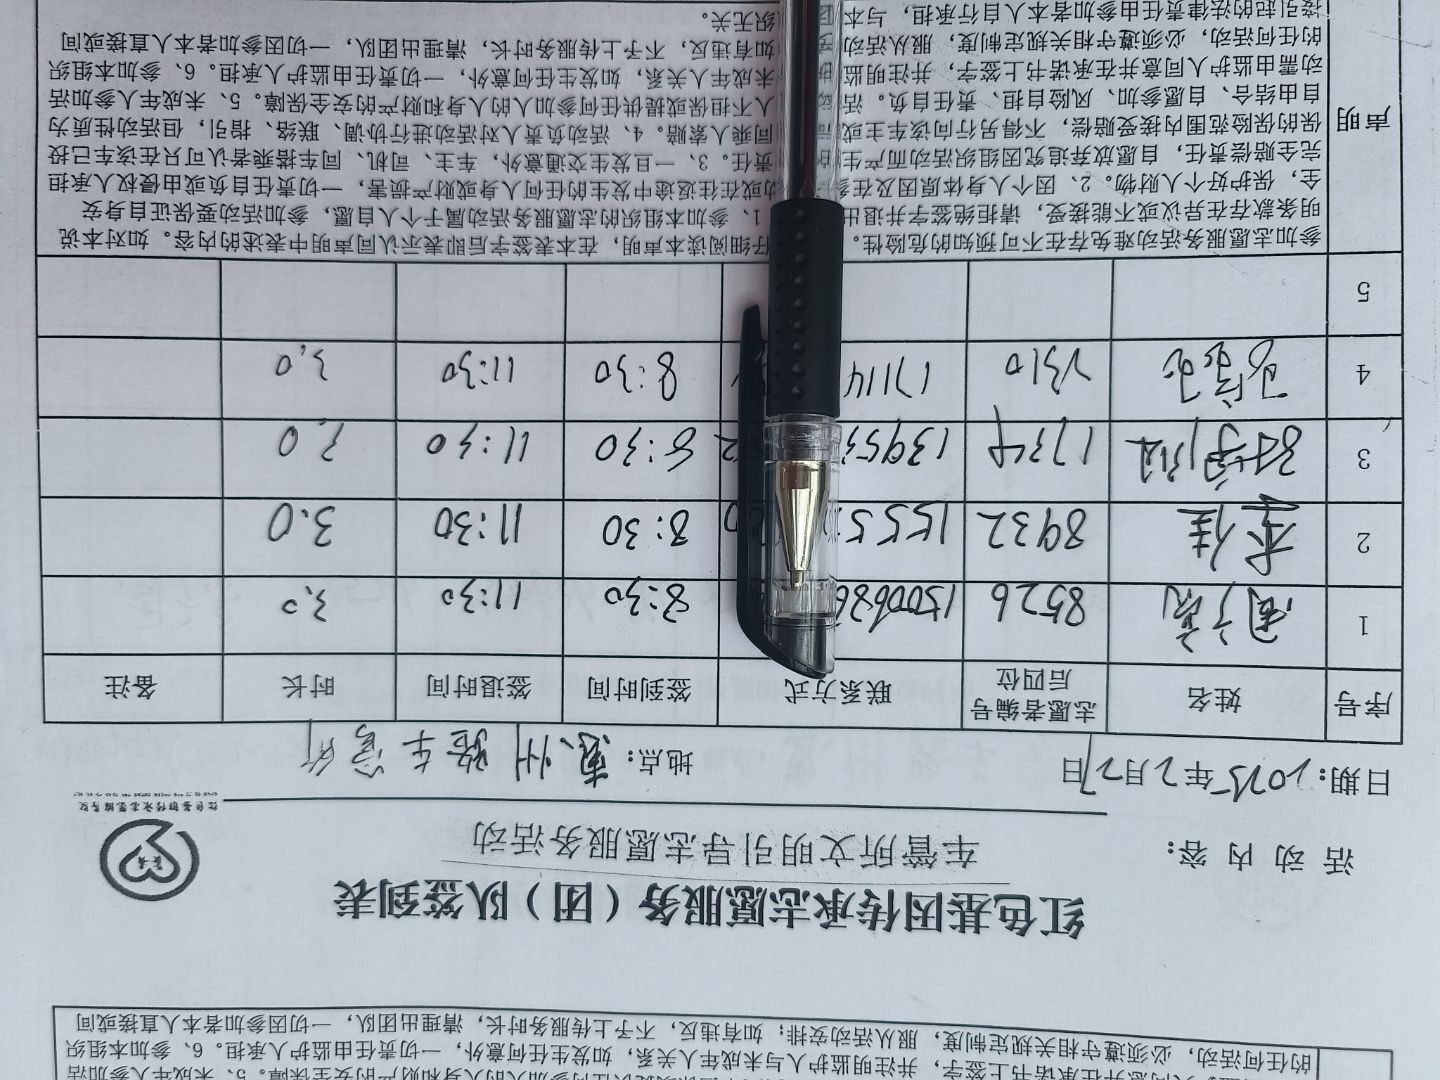 红色基因传承志愿服务（团）队签到表
活 动 内 容： 车管所文明引导志愿服务活动
日期：2025年2月27日 地点：惠州验车管所
序号 姓名 志愿者编号后四位 联系方式 签到时间 签退时间 时长 备注
1 8526 1500686 8:30 11:30 3.0
2 李佳 8932 155 8:30 11:30 3.0
3 1734 13953 8:30 11:30 3.0
4 17114 8:30 11:30 3.0
5
声明
参加志愿服务活动难免存在不可预知的危险性。 仔细阅读本声明，在本表签字后即表示认同声明中表述的内容。如对本说
明条款存在异议或不能接受，请拒绝签字并退出 1、参加本组织的志愿服务活动属于个人自愿，参加活动要保证自身安
全，保护好个人财物。2、因个人身体原因及在参 动或在往返途中发生的任何人身或财产损害，一切责任自负或由侵权人承担
完全赔偿责任，自愿放弃追究因组织活动而产生 责任。3、一旦发生交通意外，车主、司机、同车搭乘者认可只在该车已投
保的保险范围内接受赔偿，不得另行向该车主或 同乘人索赔。4、活动负责人对活动进行协调、联络、指引，但活动性质为
自由结合、自愿参加、风险自担、责任自负。活 人不担保或提供任何参加人的人身和财产的安全保障。5、未成年人参加活
动需由监护人同意并在承诺书上签字，并注明监 未成年人关系，如发生任何意外，一切责任由监护人承担。6、参加本组织
的任何活动，必须遵守相关规定制度，服从活动 如有违反，不予上传服务时长，清理出团队，一切因参加者本人直接或间
接引起的法律责任由参加者本人自行承担，与本 织无关。
并注明监护人与未成年人关系，如发生任何意外，一切责任由监护人承担。6、参加本组织
的任何活动，必须遵守相关规定制度，服从活动安排；如有违反，不予上传服务时长，清理出团队，一切因参加者本人直接或间